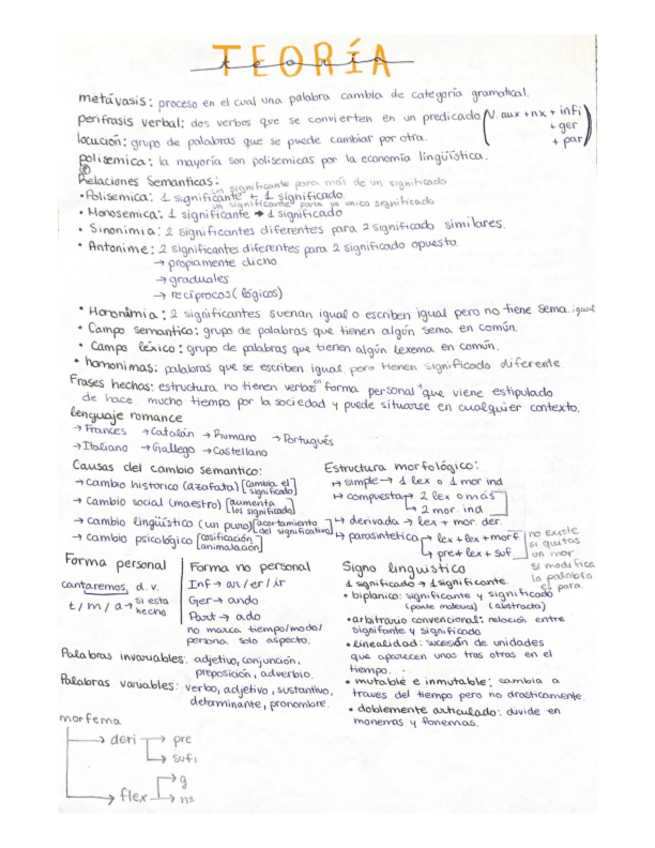 TEORÍA
teoría
metávasis: proceso en el cual una palabra cambia de categoría gramatical.
perífrasis verbal: dos verbos que se convierten en un predicado (V. aux + nx + infi
+ ger
+ par)
locución: grupo de palabras que se puede cambiar por otra.
polisemica: la mayoría son polisemicas por la economía lingüística.
Relaciones Semanticas:
un significante para más de un significado
• Polisemica: 1 significante + 1 significado
un significante para un unico significado
• Monosemica: 1 significante → 1 significado
• Sinonimia: 2 significantes diferentes para 2 significado similares.
• Antonime: 2 significantes diferentes para 2 significado opuesto.
→ propiamente dicho
→ graduales
→ recíprocos (lógicos)
• Homonimia: 2 significantes suenan igual o escriben igual pero no tiene sema. igual
• Campo semantico: grupo de palabras que tienen algún sema en común.
• Campo léxico: grupo de palabras que tienen algún lexema en común.
• homonimas: palabras que se escriben igual pero tienen significado diferente.
Frases hechas: estructura no tienen verbos en forma personal que viene estipulado
de hace mucho tiempo por la sociedad y puede situarse en cualquier contexto.
lenguaje romance
→ Frances → Catalán → Rumano → Portugués
→ Italiano → Gallego → Castellano
Causas del cambio semantico:
→ cambio historico (azafata) [cambia el significado]
→ cambio social (maestro) [aumenta los significado]
→ cambio lingüístico (un puro) [acortamiento del significativo]
→ cambio psicológico [cosificación animalación]
Estructura morfológico:
↦ simple → 1 lex o 1 mor ind
↦ compuesta → 2 lex o más
↳ 2 mor. ind
↦ derivada → lex + mor. der.
↦ parasintetica → lex + lex + morf
↳ pre + lex + suf
no existe
si quitas
un mor
si modifica
la palabra
es para.
Forma personal
cantaremos, d. v.
t / m / a → si esta hecho
Forma no personal
Inf → ar / er / ir
Ger → ando
Part → ado
no marca tiempo/modo/
persona solo aspecto.
Palabras invariables: adjetivo, conjunción,
preposición, adverbio.
Palabras variables: verbo, adjetivo, sustantivo,
determinante, pronombre.
Signo linguistico
1 significado → 1 significante.
• biplanico: significante y significado
(parte material) (abstracta)
• arbitrario convencional: relación entre
signifante y significado
• linealidad: sucesión de unidades
que aparecen unas tras otras en el
tiempo.
• mutable e inmutable: cambia a
traves del tiempo pero no drasticamente.
• doblemente articulado: divide en
monemas y fonemas.
morfema
→ deri → pre
↳ sufi
→ flex → g
→ nº